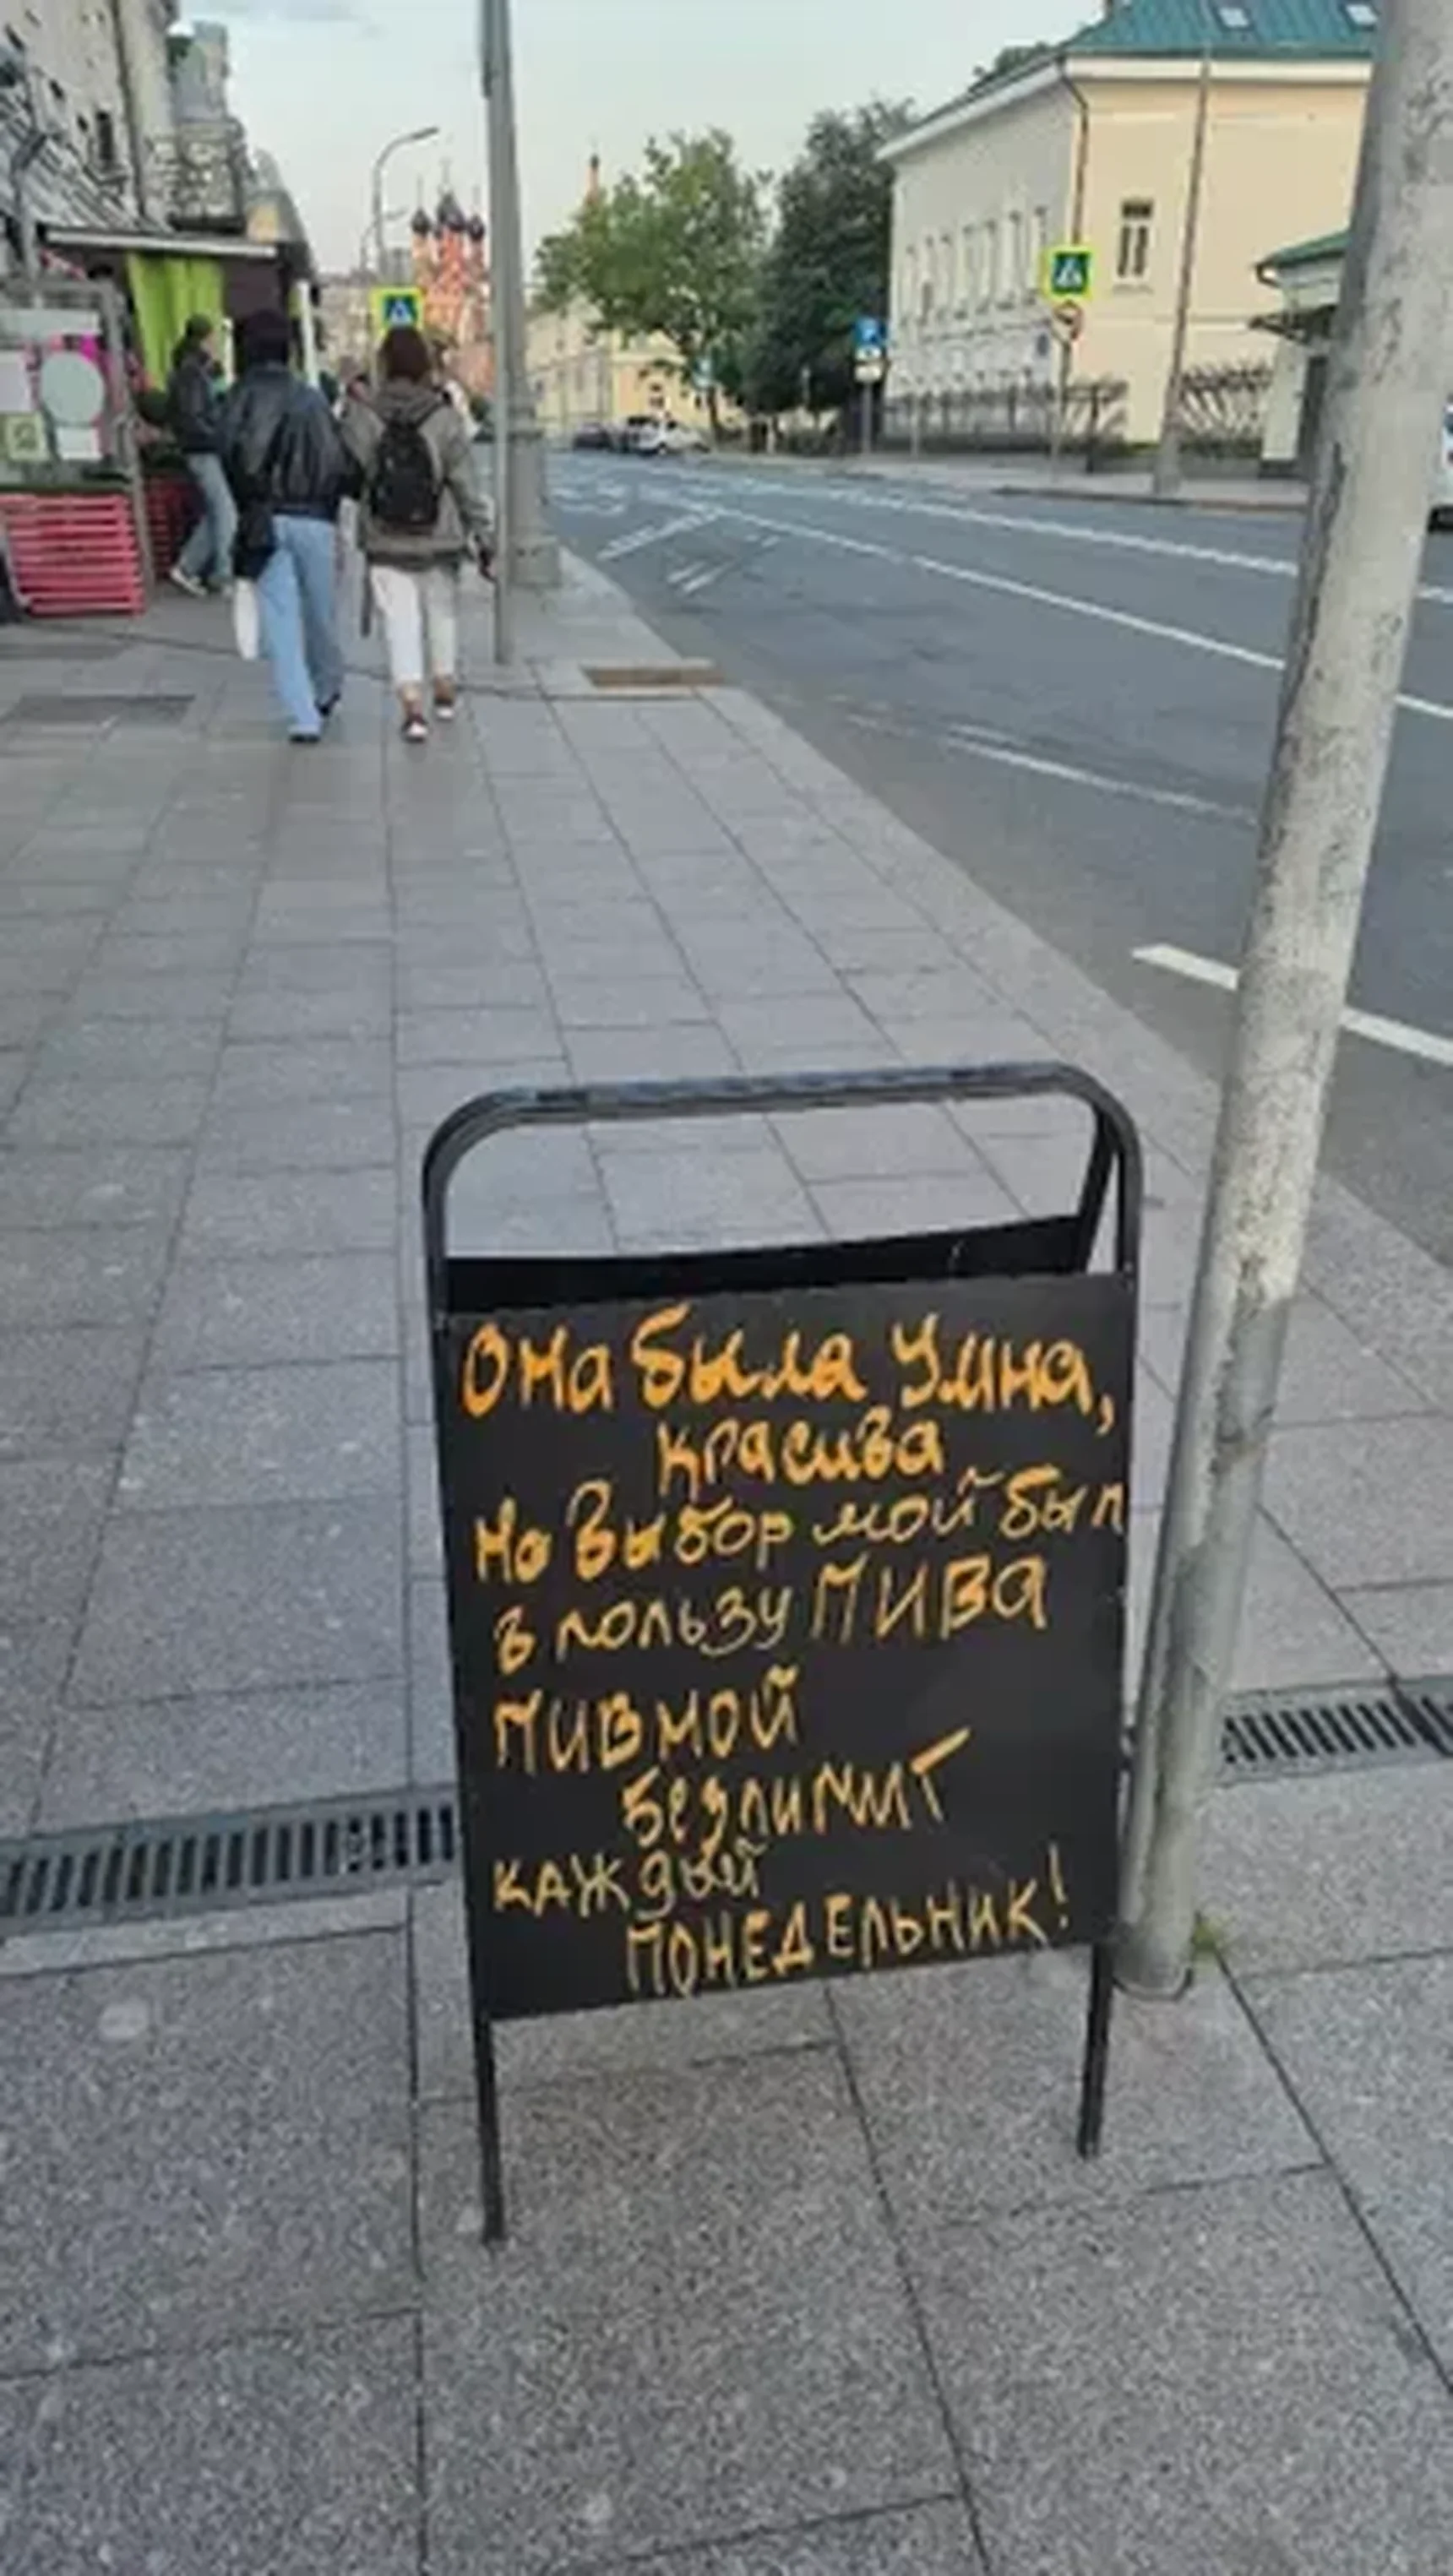 Она была Умна,
красива
Но Выбор мой был
в пользу ПИВа
ПИВНОЙ
безлимит
каждый
ПОНЕДЕЛЬНИК!